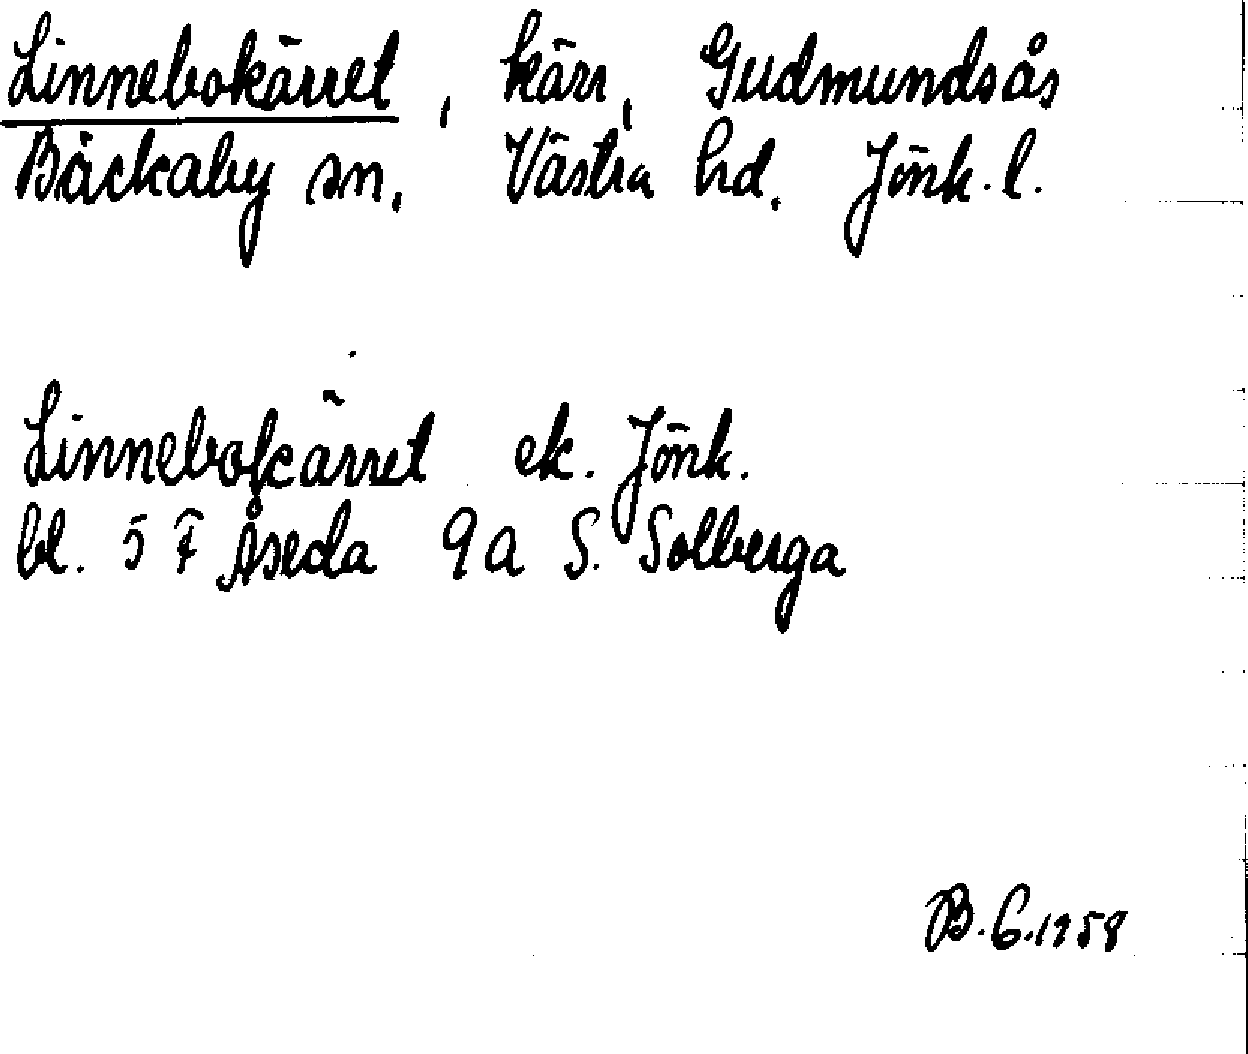 Linnebokärret, kärr, Gudmundsås
Bäckaby sn. Västra hd. Jönk. l.
Linnebokärret ek. Jönk.
bl. 5 F Åseda 9a S. Solberga
B. G. 1958